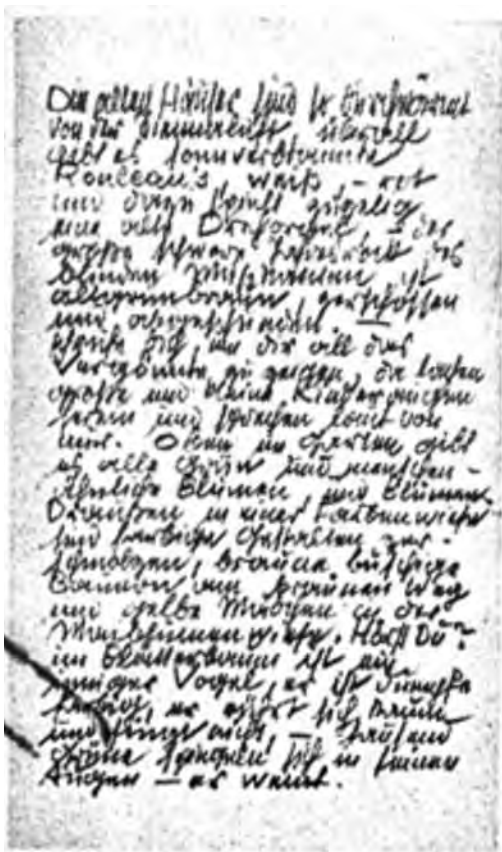 Die alten Häuser sind so durchwärmt
von der Siennaluft, überall
gibt es sonnverbrannte
Rouleau's, weiß, – rot
und dazu spielt
eine alte Drehorgel – der
große schwarze des
blinden Musikanten ist
altgrünbraun, verschossen
und abgeschunden. —
Dich, um Dir all das
zu zeigen, da lachen
große und kleine Kinderaugen
herein und sprechen laut von
mir. Oben im Garten gibt
es alle Grün und menschen-
ähnliche Blumen, und Blumen.
Draußen in einer Farbenwiese
sind farbige Gestalten zer-
schmolzen, braune buschige
Bauern am braunen Weg
und gelbe Mädchen in der
Maiblumenwiese. Hörst Du?
im Blätterbaum ist ein
inniger Vogel, er ist
er rührt sich kaum
und singt nicht, — tausend
Grüne spiegeln sich in seinen
Augen — er weint.